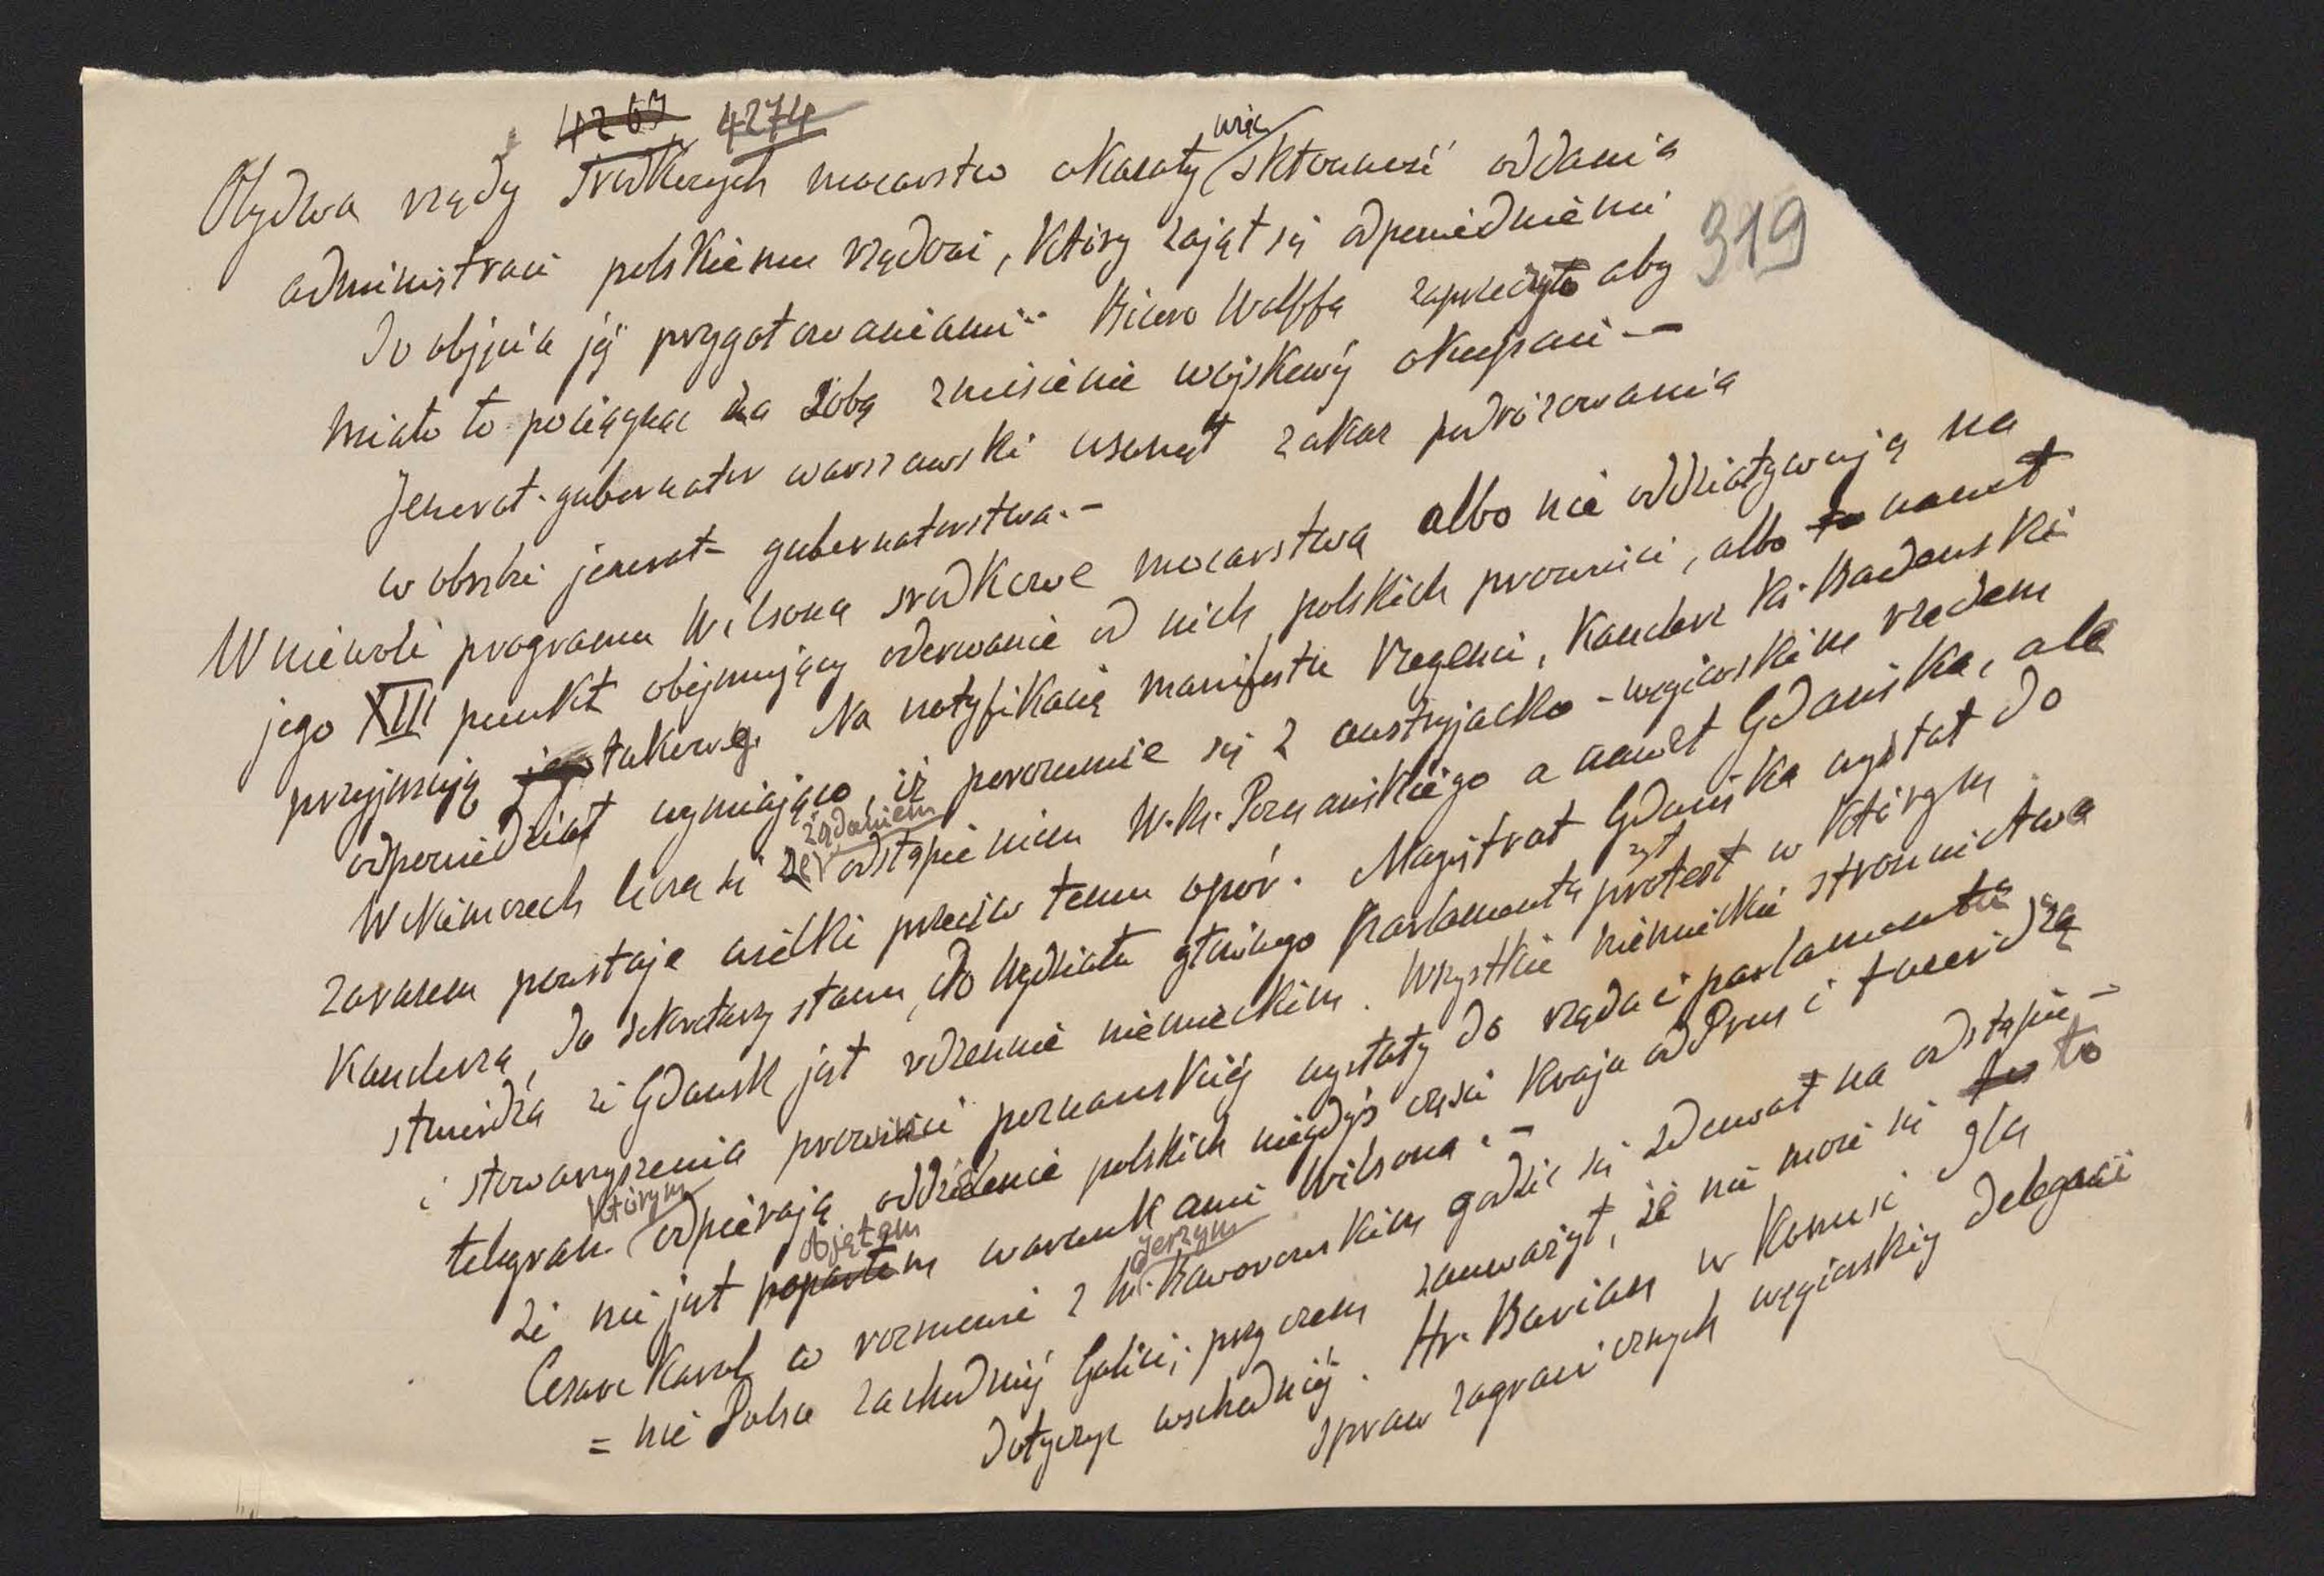 4267 4274
więc
Obydwa rządy środkowych mocarstw okazały skłonność oddania
administracii polskiemu rządowi, który zajął się odpowiedniemi
319
do objęcia jéj przygotowaniami. Biuro Wolffa zaprzeczyło aby
miało to pociągnąć za sobą zniesienie wojskowéj okupacii. —
Jenerał-gubernator warszawski usunął zakaz podróżowania
w obrębie jenerał-gubernatorstwa. —
W niewoli programu Wilsona środkowe mocarstwa albo nie oddziaływują na
jego XIII punkt obejmujący oderwanie od nich polskich prowincii, albo to nawet
przyjmują jego takowego. Na notyfikacię manifestu Regencii, kanclerz ks. Badeński
odpowiedział wymijająco, iż porozumie się z austryjacko-węgierskim rządem
żądaniem
W Niemczech liczą się ze odstąpieniem W. Ks. Poznańskiego a nawet Gdańska, ale
zarazem powstaje wielki przeciw temu opór. Magistrat Gdańska wysłał do
kanclerza, do sekretarzy stanu, do wydziału głównego parlamentu protest w którym
stwierdza że Gdańsk jest rdzennie niemieckim. Wszystkie niemieckie stronnictwa
i stowarzyszenia prowincii poznańskiéj wysłały do rządu i parlamentu
którym
telegram odpierają oddzielenie polskich niegdyś części kraju od Prus i twierdzą
objętem
że nie jest popartem warunkami Wilsona. —
Jerzym
Cesarz Karol w rozmowie z hr. Baworowskim godzić się zdawał na odstąpie-
= nie Polsce zachodniéj Galicii; przy czem zauważył, że nie może się to to
dotyczyć wschodniéj. Hr. Burian w komisii dla
spraw zagranicznych węgierskiéj delegacii